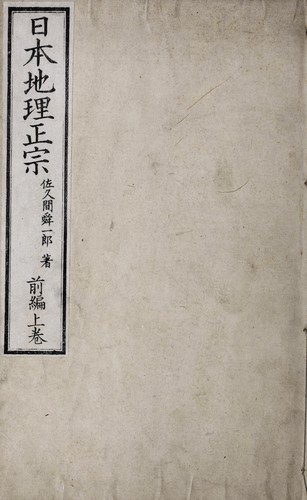 日本地理正宗
佐久間舜一郎 著
前編上卷